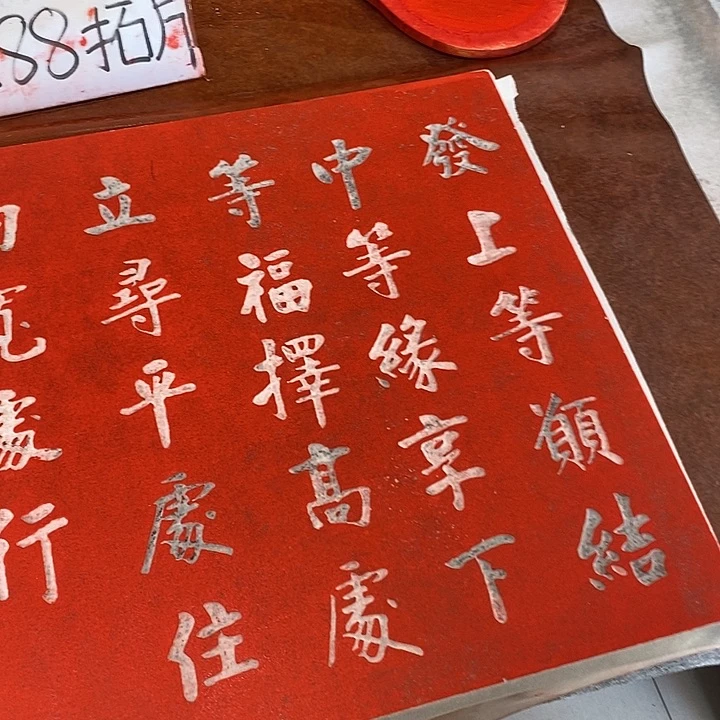 88·拓片
發上等願結
中等緣享下
等福擇高處
立尋平處住
向寬處行